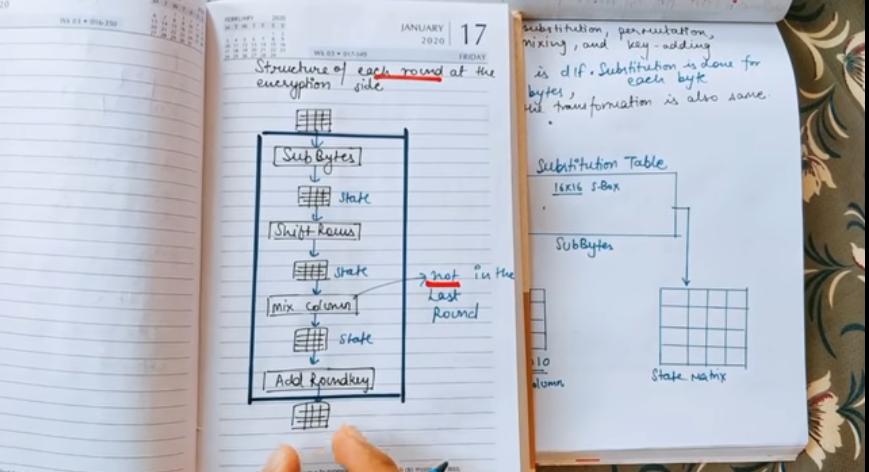 FEBRUARY 2020
JANUARY
2020
17
Wk 03 • 017-349
FRIDAY
Wk 03 • 016-350
Structure of each round at the
encryption side
SubBytes
State
Shift Rows
State
mix column
not in the
Last
Round
State
Add Roundkey
substitution, permutation,
mixing, and key-adding
is dif. Substitution is done for
each byte
bytes,
the transformation is also same.
Substitution Table
16x16 S-Box
SubBytes
State Matrix